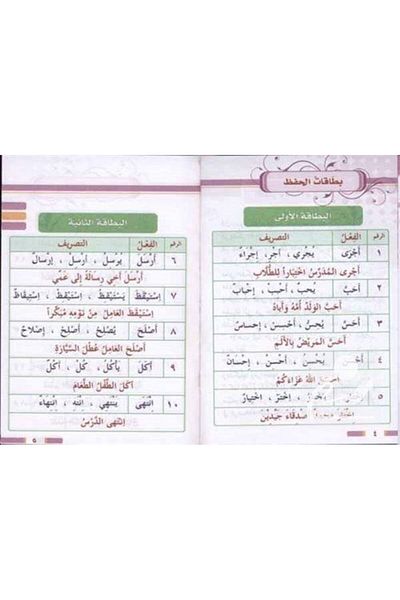 بطاقات الحفظ
البطاقة الأولى
الرقم الفِعْل التصريف
١ أَجْرَى يُجْرِي ، أَجْرِ، إِجْرَاءً
أَجْرَى الْمُدَرِّسُ اخْتِبَاراً لِلطُّلَّابِ
٢ أَحَبَّ يُحِبُّ ، أَحْبِبْ ، إِحْبَابٌ
أَحَبَّ الْوَلَدُ أُمَّهُ وَأَبَاهُ
٣ أَحَسَّ يُحِسُّ ، أَحْسِسْ ، إِحْسَاسٌ
أَحَسَّ الْمَرِيضُ بِالْأَلَمِ
٤ أَحْسَنَ يُحْسِنُ ، أَحْسِنْ ، إِحْسَانٌ
اللهُ عَزَاءَكُمْ
٥ اخْتَرْ ، اخْتِيَارٌ
صدقاءَ جَيِّدِينَ
٤
البطاقة الثانية
الرقم الفِعْل التصريف
٦ أَرْسَلَ يُرْسِلُ ، أَرْسِلْ ، إِرْسَالٌ
أَرْسَلَ أَخِي رِسَالَةً إِلَى عَمِّي
٧ اِسْتَيْقَظَ يَسْتَيْقِظُ ، اِسْتَيْقِظْ ، اِسْتِيقَاظٌ
اِسْتَيْقَظَ الْعَامِلُ مِنْ نَوْمِهِ مُبَكِّراً
٨ أَصْلَحَ يُصْلِحُ ، أَصْلِحْ ، إِصْلَاحٌ
أَصْلَحَ الْعَامِلُ عُطْلَ السَّيَّارَةِ
٩ أَكَلَ يَأْكُلُ ، كُلْ ، أَكْلٌ
أَكَلَ الطِّفْلُ الطَّعَامَ
١٠ اِنْتَهَى يَنْتَهِي ، اِنْتَهِ ، اِنْتِهَاءً
اِنْتَهَى الدَّرْسُ
٥